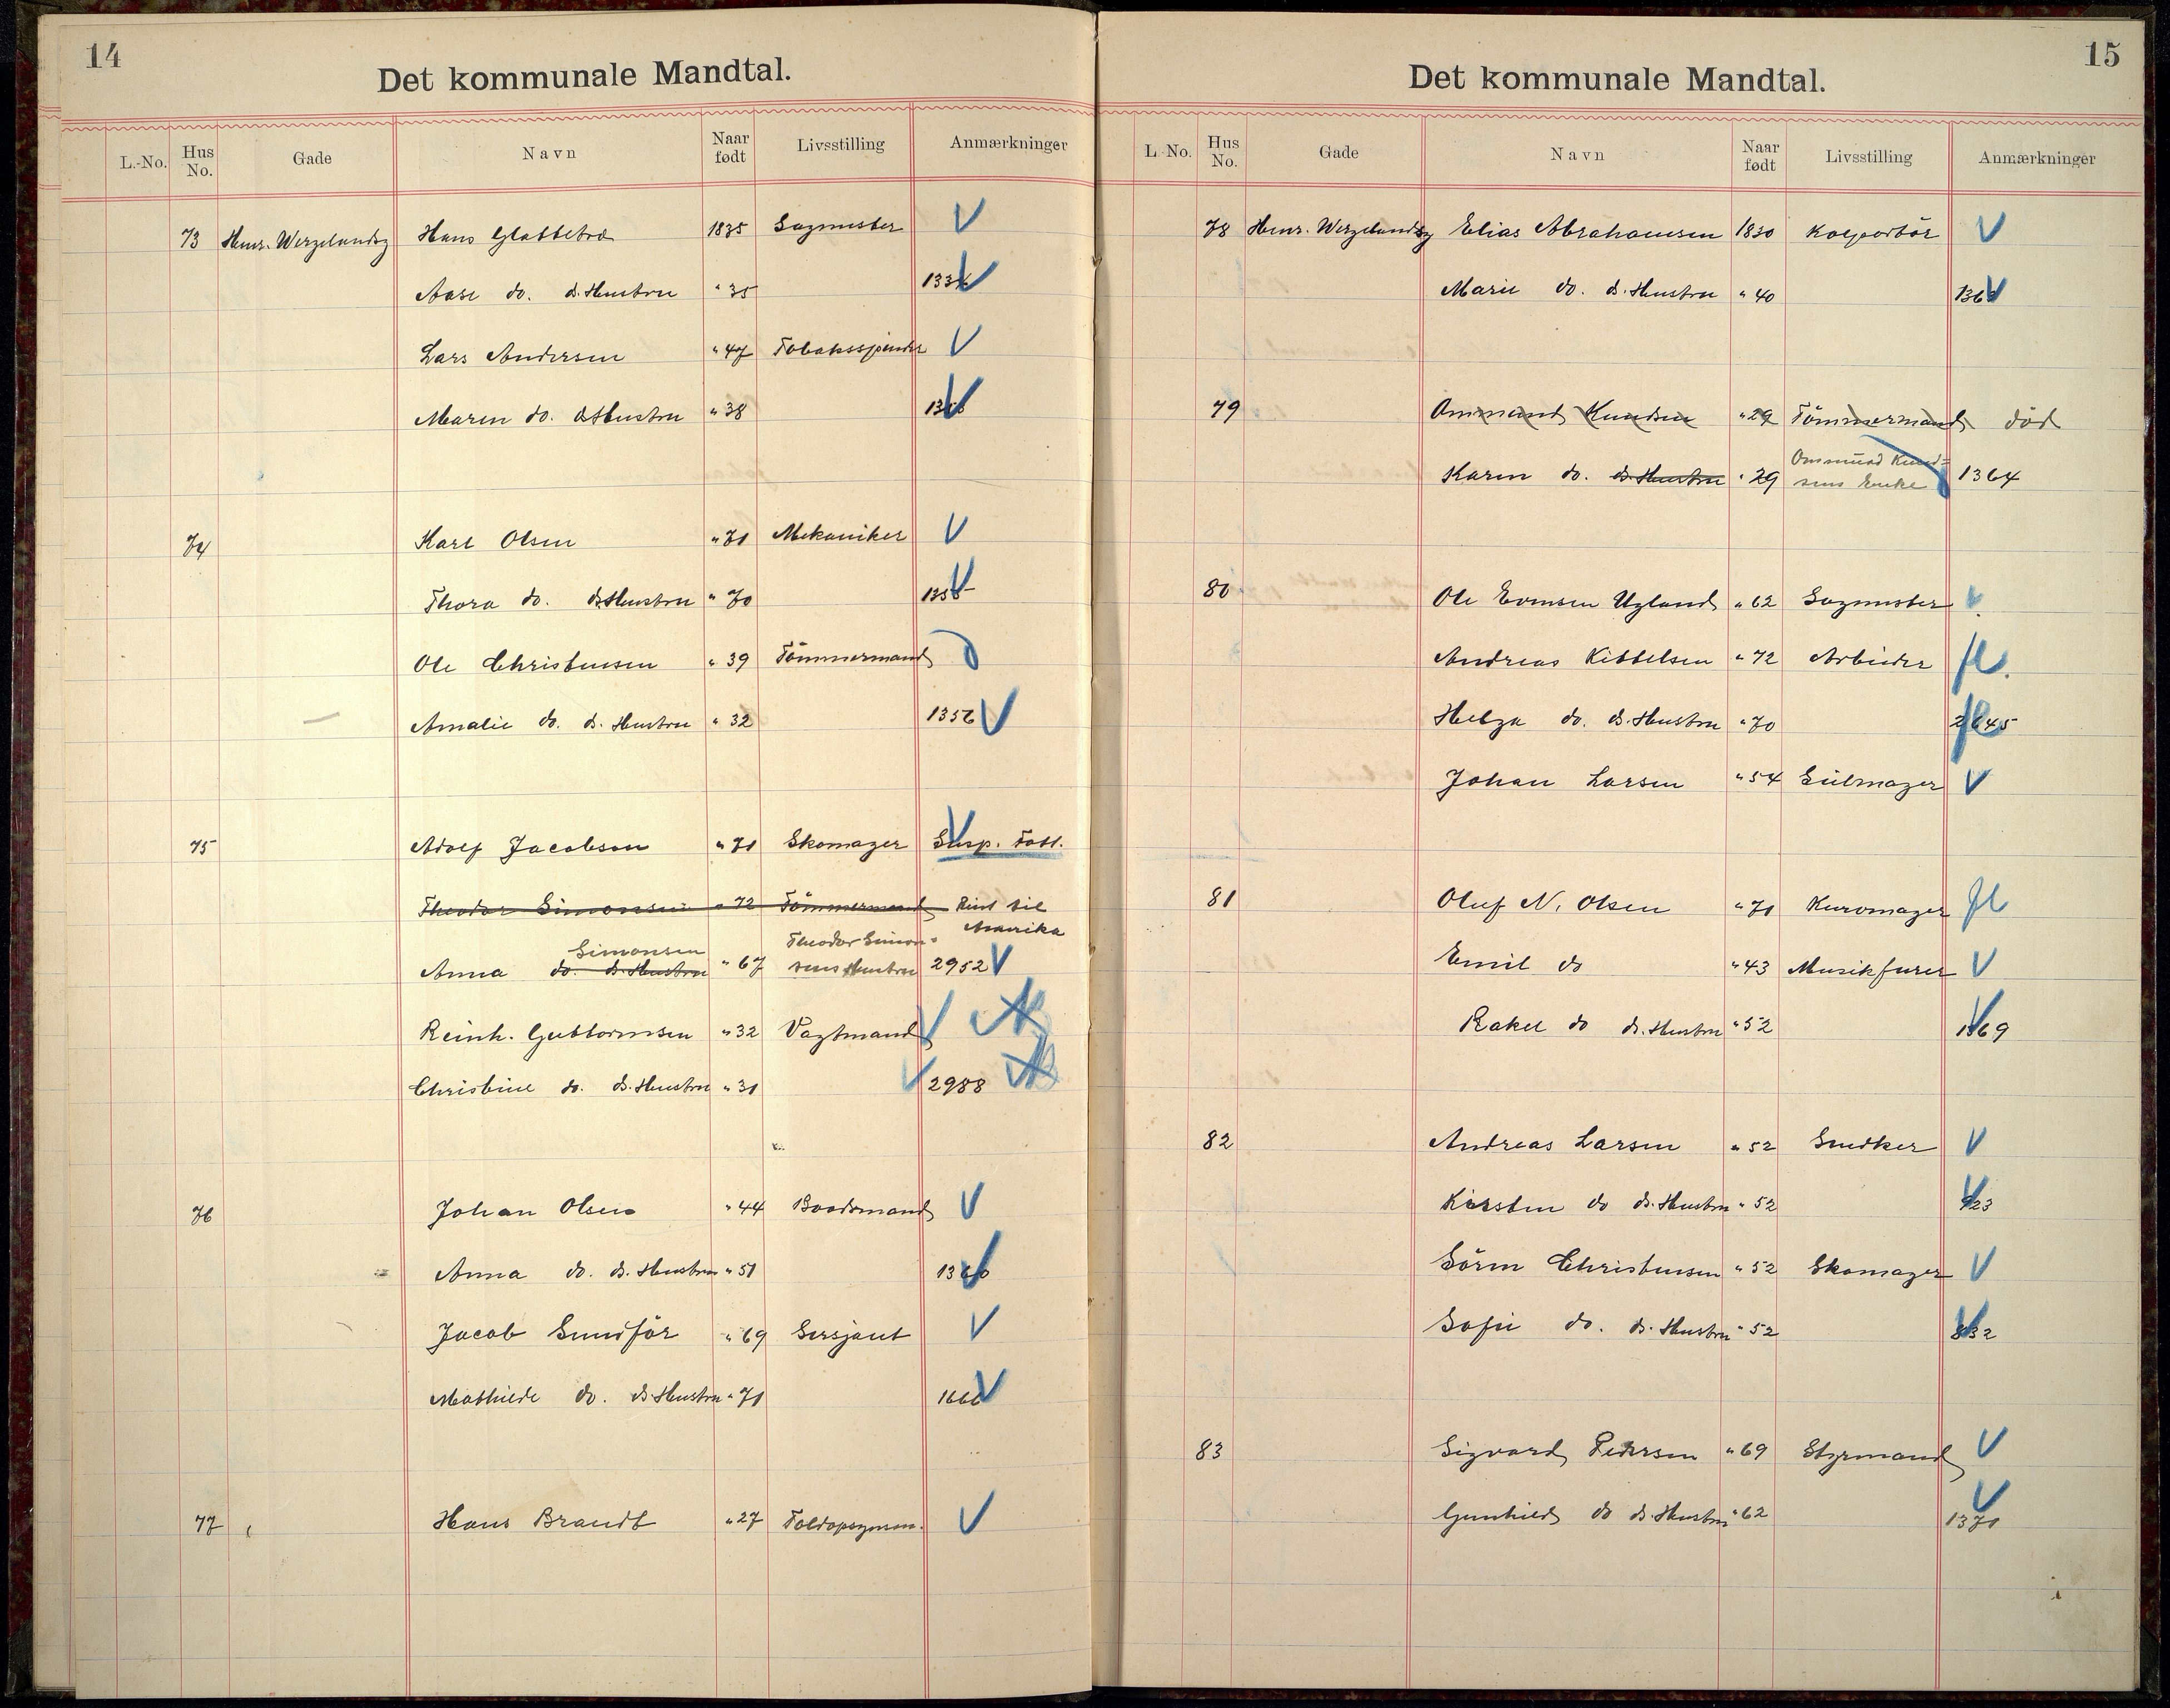 14
Det kommunale Mandtal.
L.-No. Hus No. Gade Navn Naar født Livsstilling Anmærkninger
73 Henr. Wergelandsg Hans Glattetre 1835 Sagmester V
Aase do. d. Hustru " 35 V
Lars Andersen " 47 Tobaksspinder V
Maren do. d. Hustru " 38 V
74 Karl Olsen " 71 Mekaniker V
Thora do. d. Hustru " 70 V
Ole Christensen " 39 Tömmermand
Amalie do. d. Hustru " 32 1356 V
75 Adolf Jacobsen " 71 Skomager Susp. Fatt.
Theodor Simonsen " 72 Tömmermand Reist til Amerika
Simonsen Theodor Simon-
Anna do. d. Hustru " 67 sens Hustru 2952 V
Reinh. Guttormsen " 32 Vagtmand V
Christine do. d. Hustru " 31 V 2988
76 Johan Olsen " 44 Baadsmand V
Anna do. d. Hustru " 51 1360
Jacob Sundför " 69 Sersjant V
Mathilde do. d. Hustru " 71 1666 V
77 Hans Brandt " 27 Toldopsynsm. V
15
Det kommunale Mandtal.
L No. Hus No. Gade Navn Naar født Livsstilling Anmærkninger
78 Henr. Wergelandsg Elias Abrahamsen 1830 Kolportör V
Marie do. d. Hustru " 40 V
79 Ommund Knudsen " 29 Tömmermand död
Ommund Knud-
Karen do. d. Hustru " 29 sens Enke 1364
80 Ole Evensen Ugland " 62 Sagmester V
Andreas Kittelsen " 72 Arbeider fl.
Helga do. d. Hustru " 70 2645 fl
Johan Larsen " 54 Seilmager V
81 Oluf N. Olsen " 71 Kurvmager fl
Emil do " 43 Musikfører V
Rakel do d. Hustru " 52 1369
82 Andreas Larsen " 52 Snedker V
Kirsten do d. Hustru " 52 V
Sören Christensen " 52 Skomager V
Sofie do. d. Hustru " 52 832
83 Sigvard Pedersen " 69 Styrmand V
Gunhild do d. Hustru " 62 V 1371